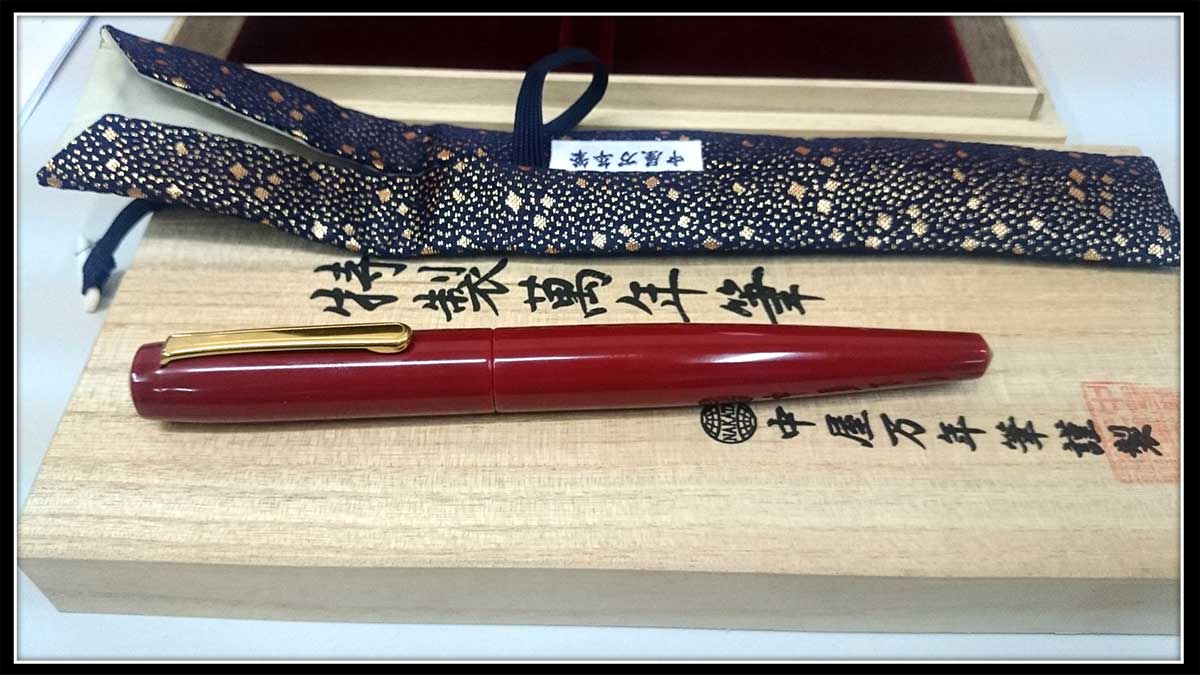 中屋万年筆
特製萬年筆
NAKAYA
中屋万年筆謹製